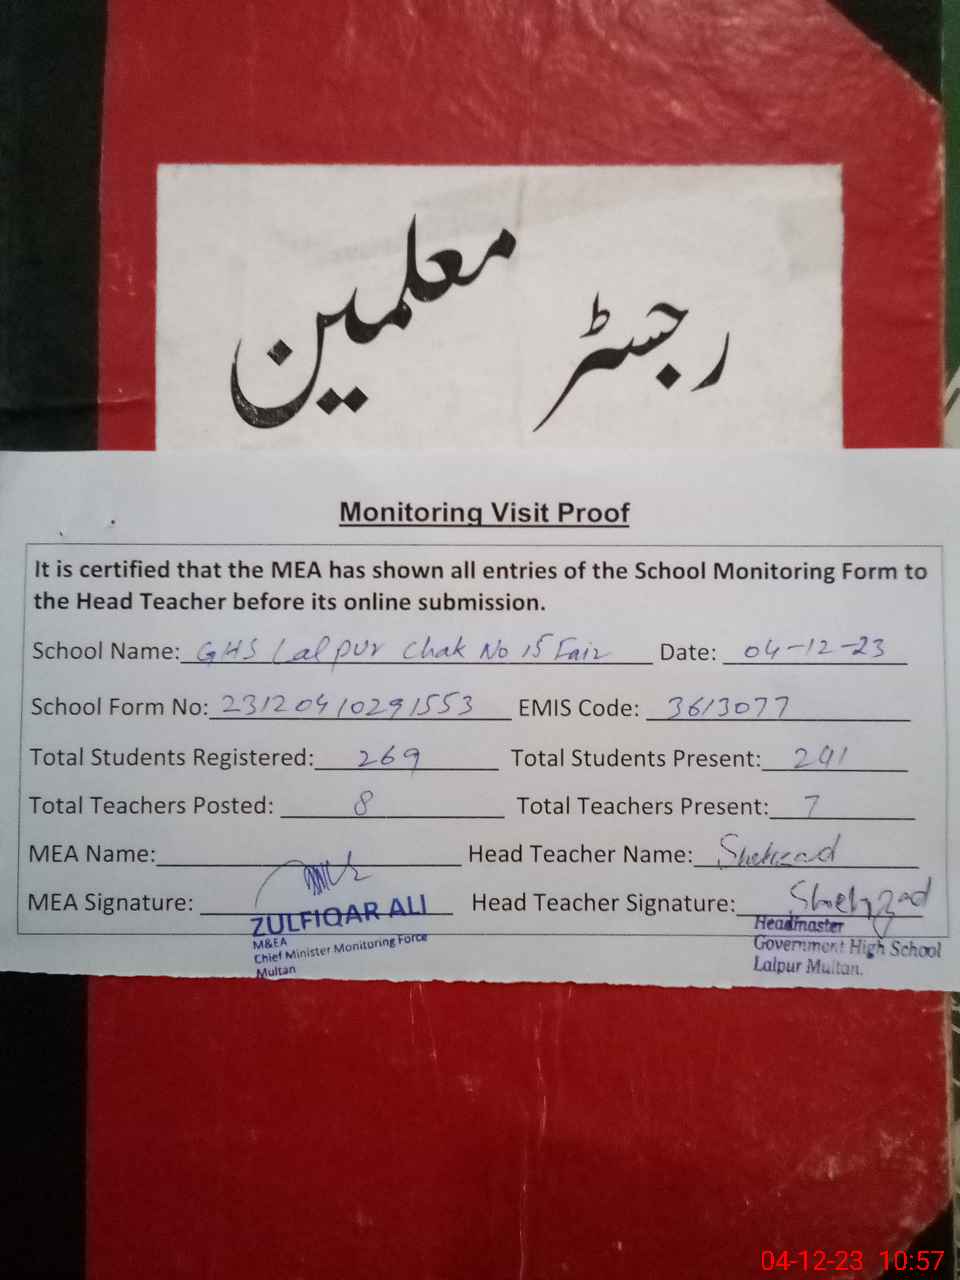 رجسٹر معلمین
Monitoring Visit Proof
It is certified that the MEA has shown all entries of the School Monitoring Form to
the Head Teacher before its online submission.
School Name: GHS Lalpur Chak No 15 Faiz Date: 04-12-23
School Form No: 23120410291553 EMIS Code: 3613077
Total Students Registered: 269 Total Students Present: 241
Total Teachers Posted: 8 Total Teachers Present: 7
MEA Name: Head Teacher Name: Shehzad
MEA Signature: Head Teacher Signature: Shehzad
ZULFIQAR ALI
M&EA
Chief Minister Monitoring Force
Multan
Headmaster
Government High School
Lalpur Multan.
04-12-23 10:57